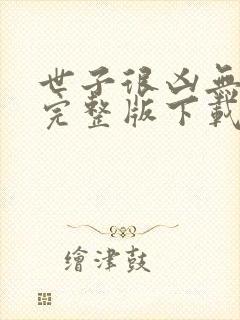 世子很凶無
完整版下載
繪津鼓